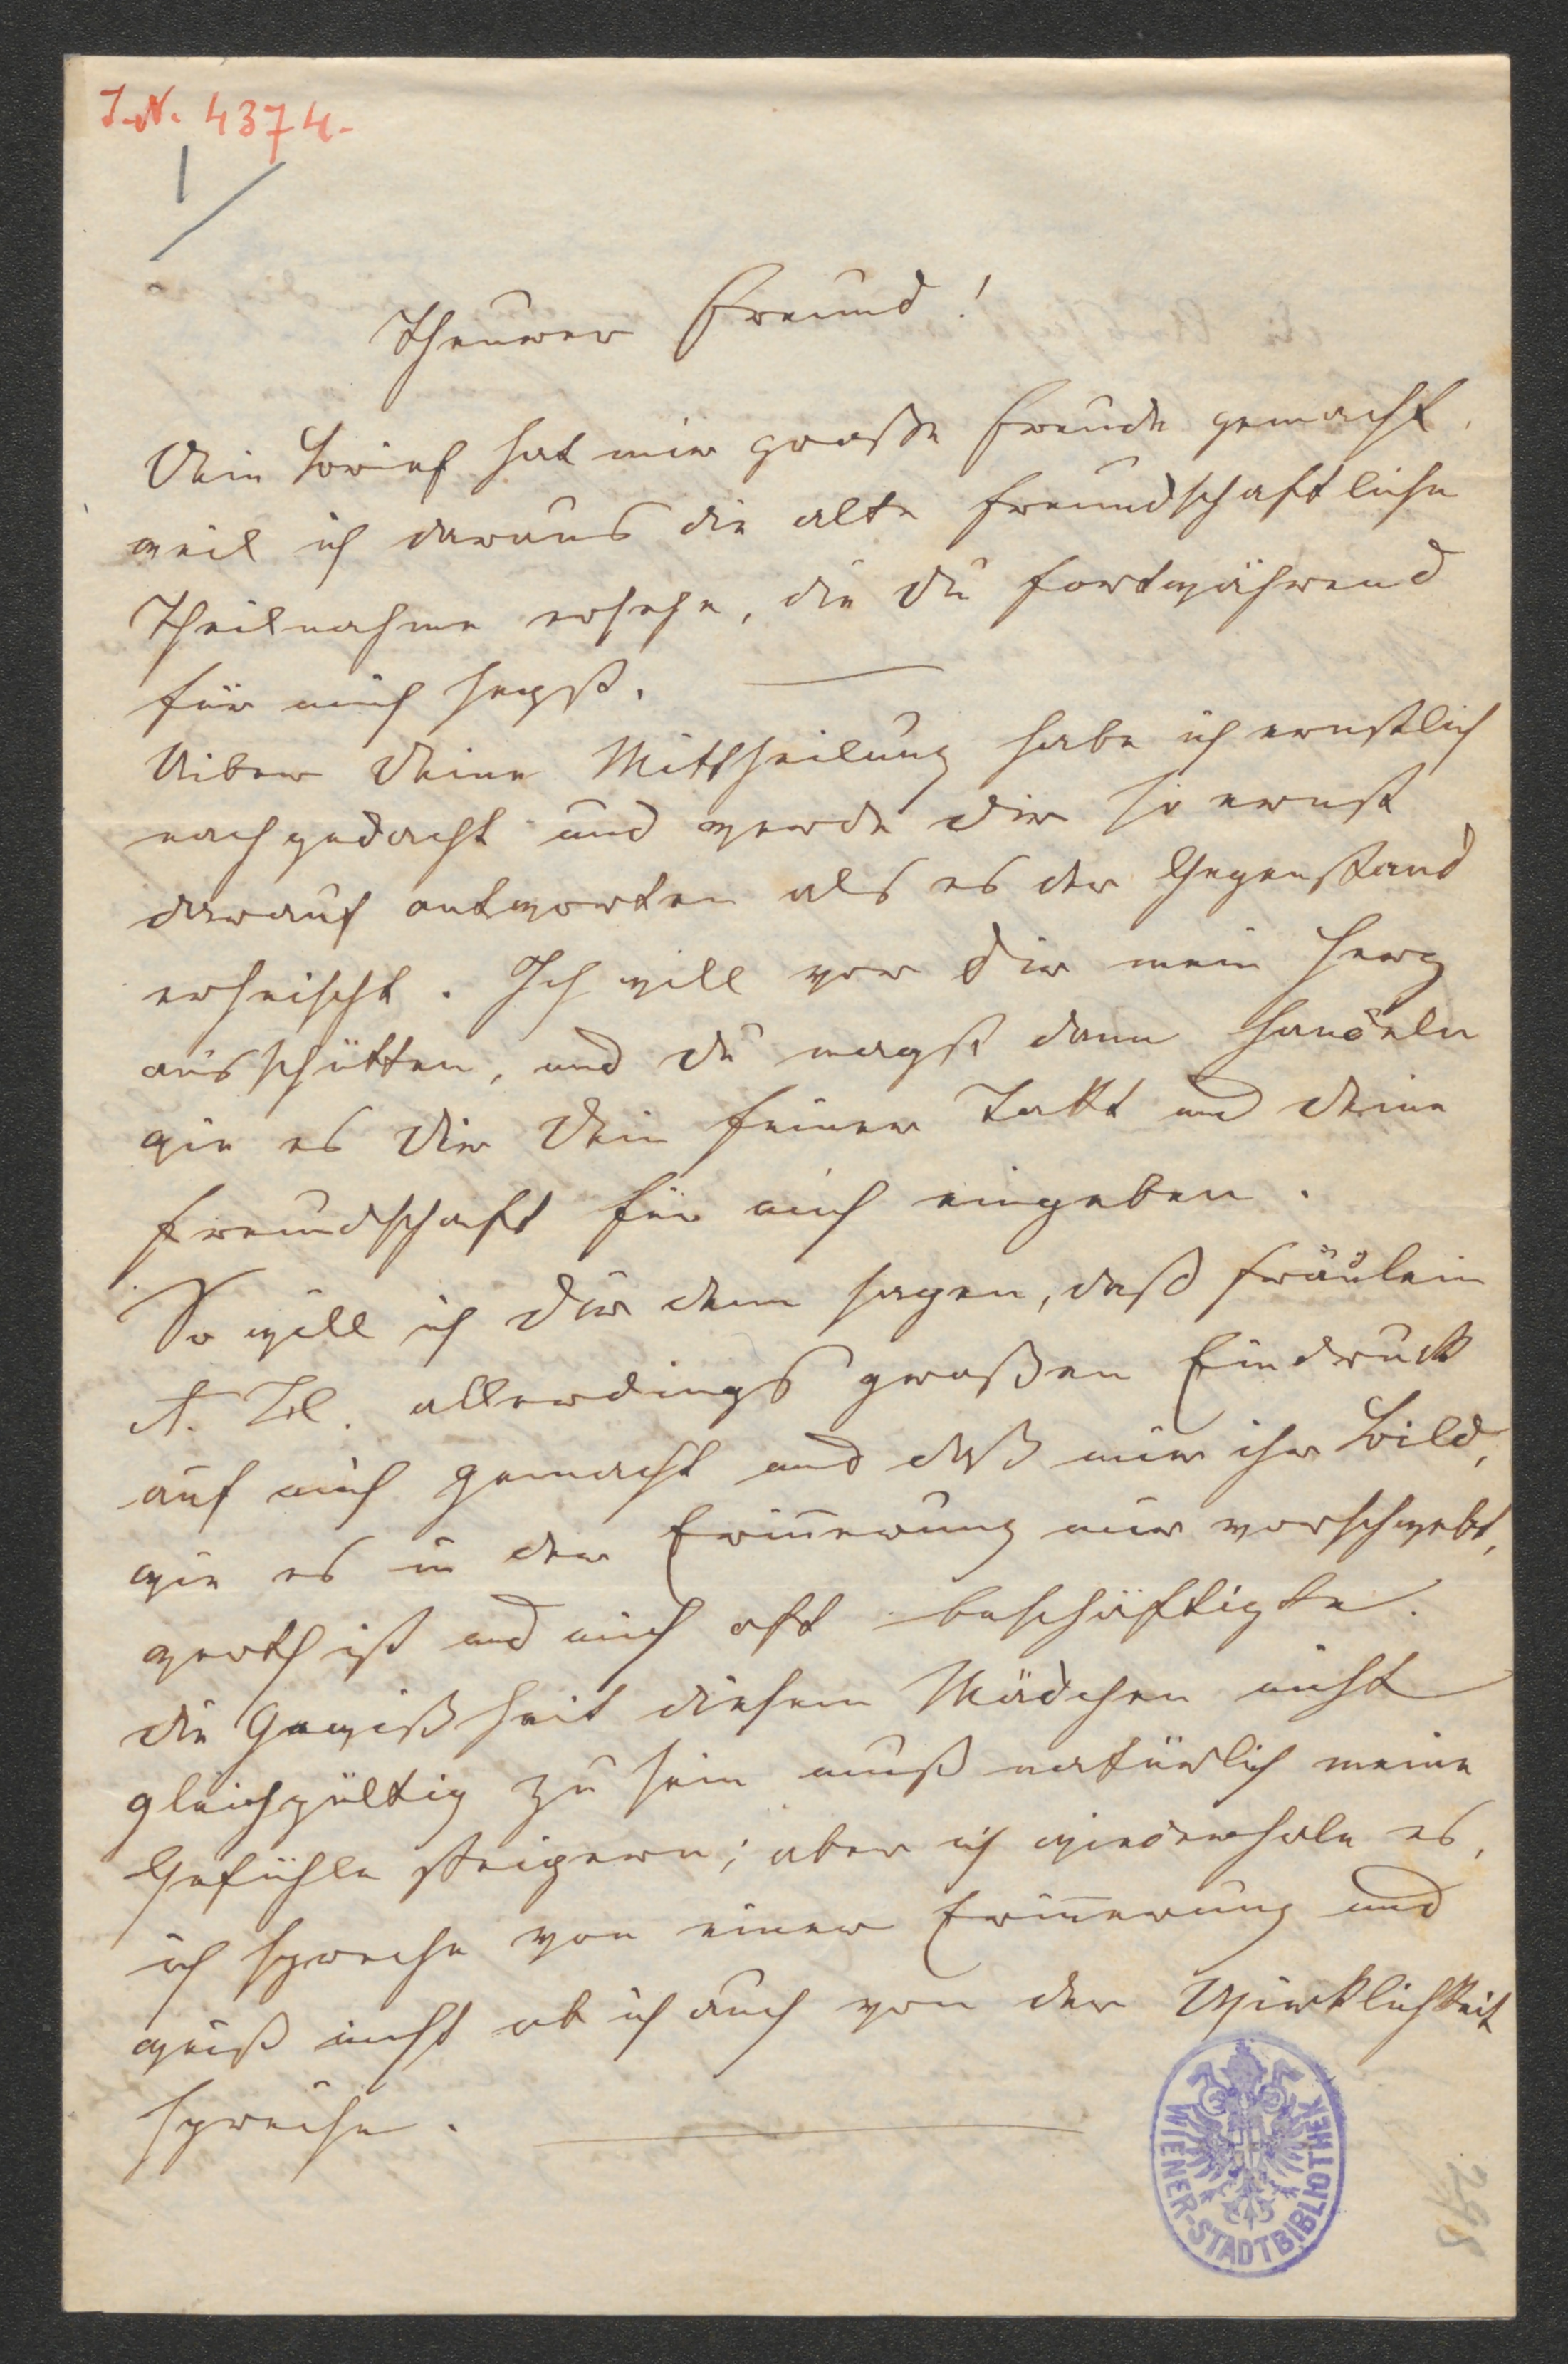 I.N. 4374.
1
Theurer Freund!
Dein Brief hat mir große Freude gemacht,
weil ich daraus die alte freundschaftliche
Theilnahme ersehe, die Du fortwährend
für mich hegst.
Uiber Deine Mittheilung habe ich ernstlich
nachgedacht und werde Dir so ernst
darauf antworten als es der Gegenstand
erheischt. Ich will vor Dir mein Herz
ausschütten, und Du magst dann handeln
wie es Dir Dein feiner Takt und Deine
Freundschaft für mich eingeben.
So will ich Dir denn sagen, daß Fräulein
A. allerdings großen Eindruck
auf mich gemacht und daß mir ihr Bild,
wie es in der Erinnerung mir vorschwebt,
werth ist und mich oft beschäftigte.
Die Gewißheit diesem Mädchen nicht
gleichgültig zu sein muß natürlich meine
Gefühle steigern; aber ich wiederhole es,
ich spreche von einer Erinnerung und
weiß nicht ob ich auch von der Wirklichkeit
spreche.
WIENER-STADTBIBLIOTHEK